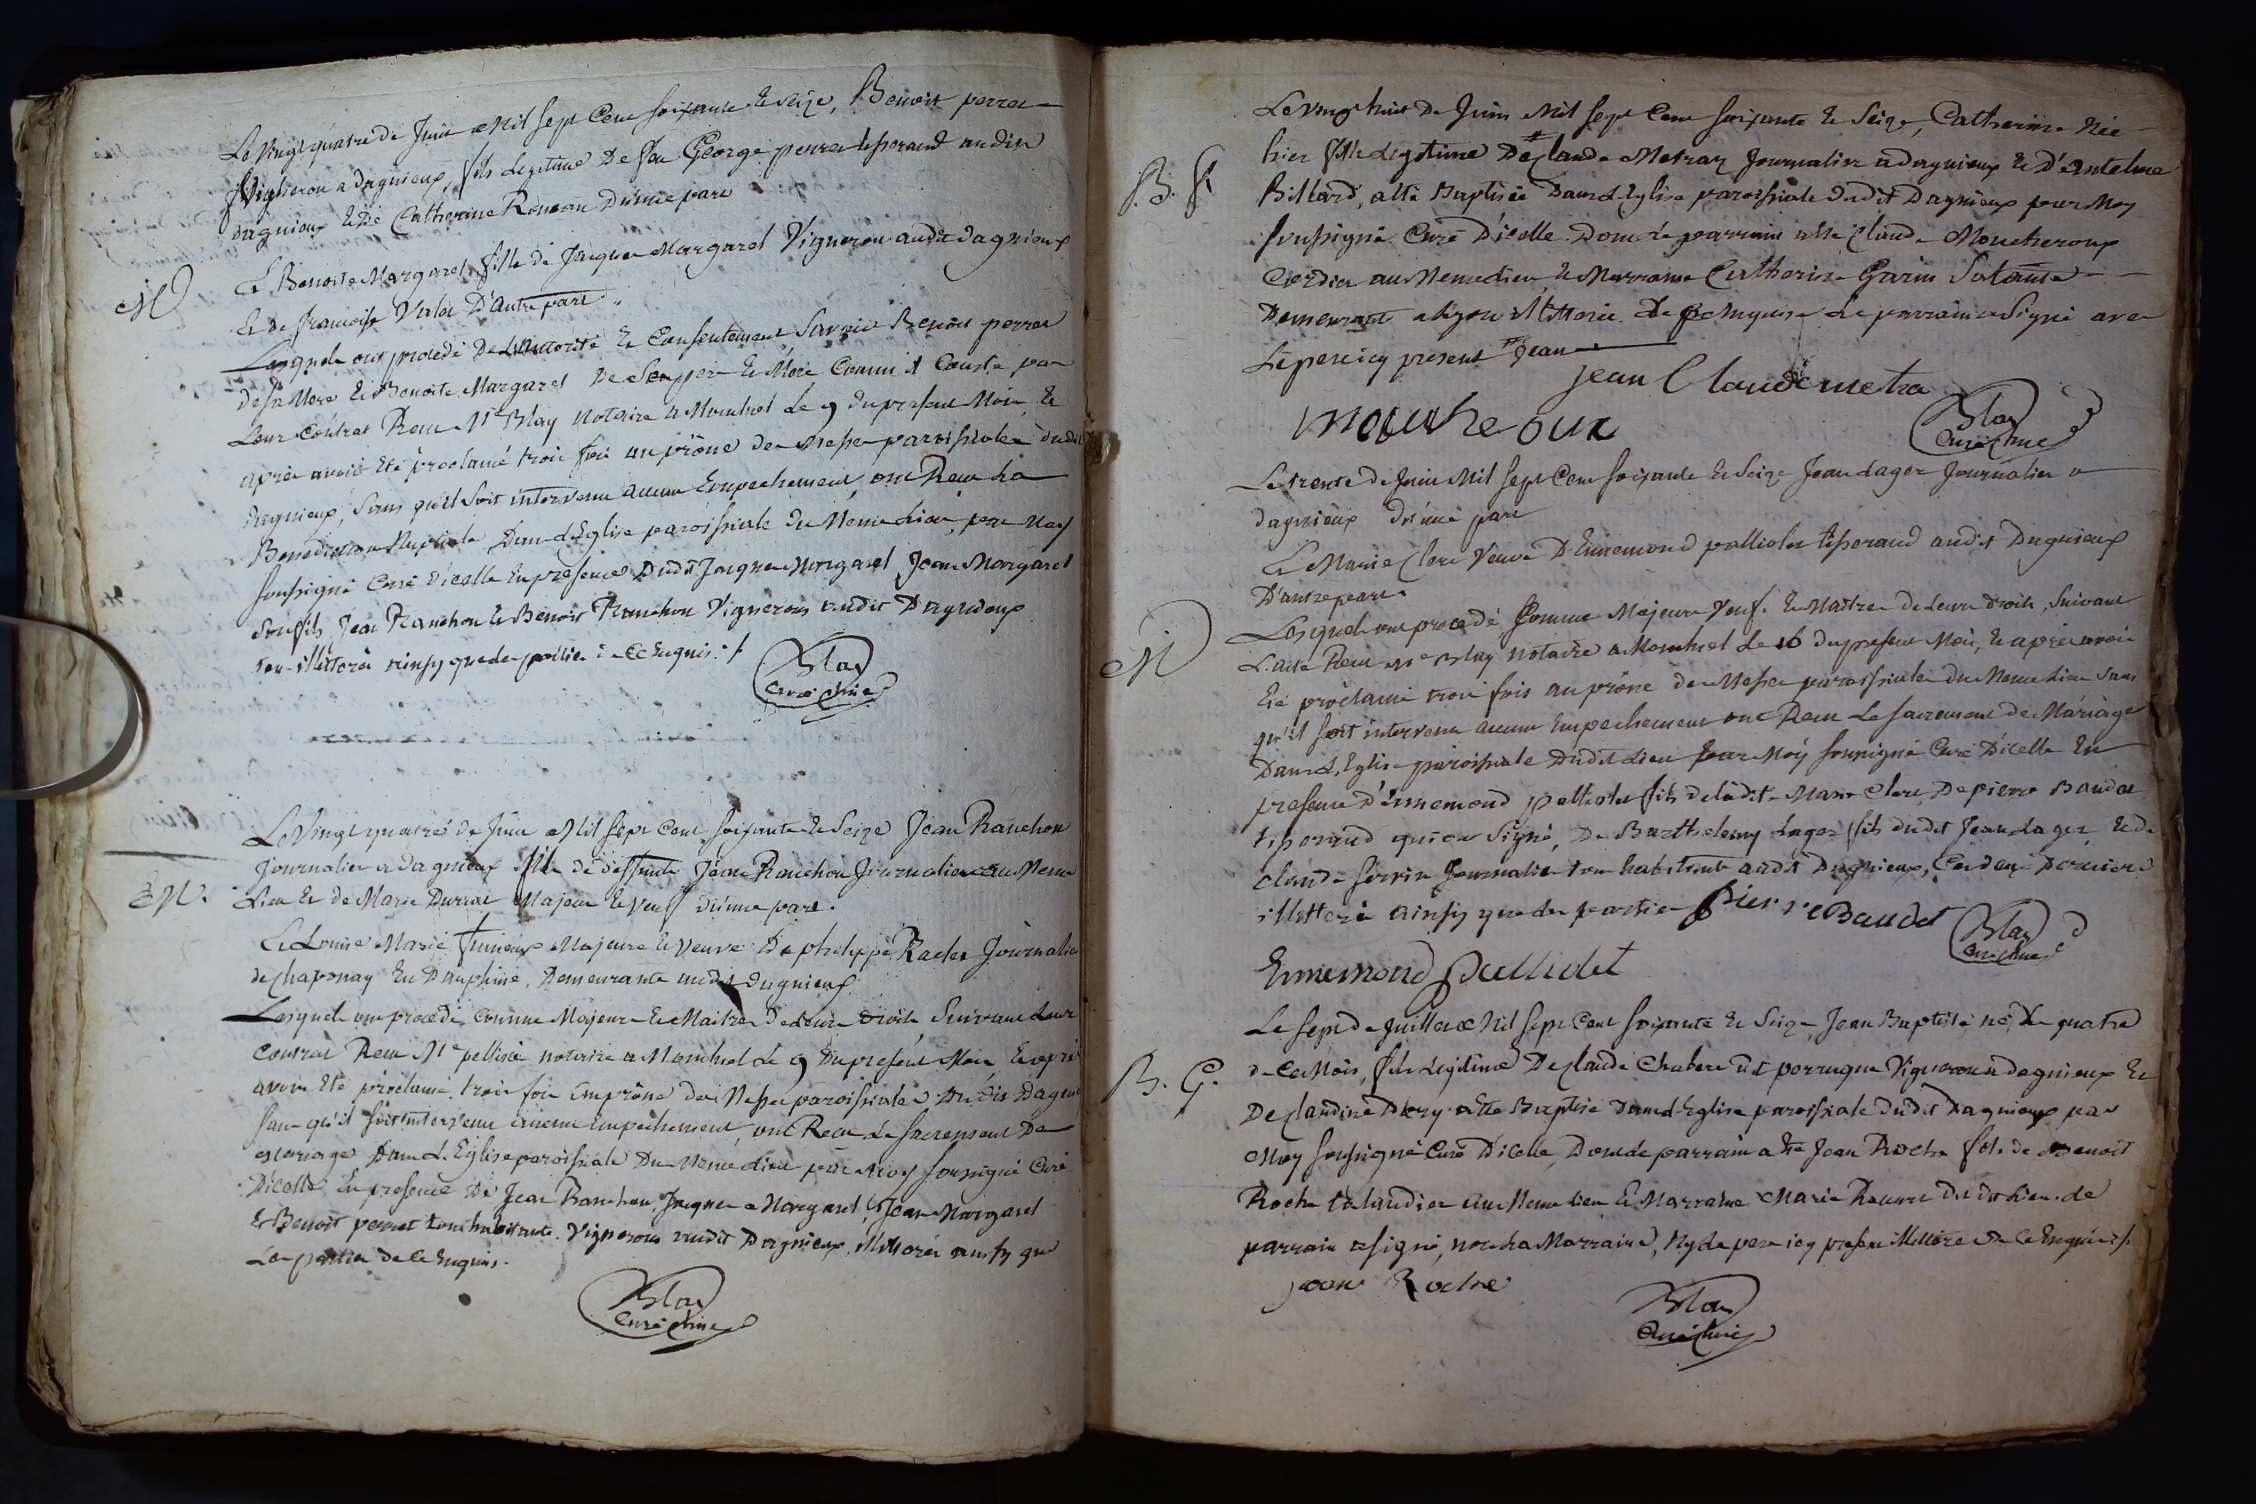 Le vingt quatre de Juin Mil Sept Cent soixante et seize, Benoit perret
Vigneron a dagnieux, fils Legitime De feu George perret tisserand audit
dagnieux et de Catherine Rousson D'une part
M
Et Benoite Margaret fille de Jacques Margaret Vigneron audit dagnieux
Et de francoise D'autre part.
Lesquels ont procédé De L'autorité et Consentement, Savoir Benoit perret
De sa Mere et Benoite Margaret De Son pere et Mere Comme il Conste par
Leur Contrat Recu Me Blay notaire a Montluel Le 9 du present Mois, et
apres avoir Eté proclamé trois fois au prône des Messes paroissiales dudit
dagnieux, Sans qu'il Soit intervenu aucun Empechement, ont Recu La
Benediction Nuptiale Dans L'Eglise paroissiale du Meme Lieu, par Moy
soussigné Curé D'icelle En presence Dudit Jacques Margaret, Jean Margaret
Son fils, Jean Ranchon et Benoit Ranchon Vignerons audit Dagnieux
tous illittorés ainsy que des parties de Ce Enquis ./.
Blay
Curé
Le Vingt quatre de Juin Mil Sept Cent soixante et Seize Jean Ranchon
Journalier a dagnieux fils de deffunts Jean Ranchon Journalier au Meme
M.
Lieu et de Marie Durret Majeur et Veuf D'une part.
Et Louise Marie Majeure et Veuve De philippe Raclet Journalier
de Chaponay En Dauphiné, Demeurante audit dagnieux
Lesquels ont procédé Comme Majeurs et Maitres De Leurs droits Suivant Leur
Contrat Recu Me pellisson notaire a Montluel Le 9 Du present Mois, et après
avoir Eté proclamé trois fois au prône des Messes paroissiales Dudit Dagnieux
Sans qu'il Soit intervenu aucun Empechement, ont Recu Le Sacrement De
Mariage Dans L'Eglise paroissiale Du Meme Lieu par Moy soussigné Curé
D'icelle En presence De Jean Ranchon, Jacques Margaret, Jean Margaret
et Benoit perret tous habitants Vignerons audit Dagnieux, illittorés ainsy que
Les parties de Ce Enquis.
Blay
Curé
Le Vingt huit De Juin Mil Sept Cent Soixante et Seize, Catherine Née
hier fille Legitime De # Claude Metraz Journalier a Dagnieux et D'antelme
B. f.
Billard, a Eté Baptisée Dans L'Eglise paroissiale Dudit Dagnieux par Moy
soussigné Curé D'icelle. Dont Le parrain a Eté Claude Moucheroux
Cordier au Meme Lieu, et Marraine Catherine Garin
Demeurante a Lyon illittorée De Ce Enquise Le parrain a Signé avec
Le pere icy present # Jean
jean Claude metra
moucheroux
Blay
Curé
Le trente de Juin Mil Sept Cent soixante et Seize Jean Lager Journalier a
dagnieux D'une part
Et Marie Clerc Veuve D'Ennemond palliolet tisserand audit Dagnieux
D'autre part.
M
Lesquels ont procédé Comme Majeurs Veufs et Maitres de Leurs droits, Suivant
L'acte Recu Me Blay notaire a Montluel Le 16 du present Mois, et après avoir
Eté proclamé trois fois au prône des Messes paroissiales du Meme Lieu Sans
qu'il Soit intervenu aucun Empechement ont Recu Le Sacrement De Mariage
Dans L'Eglise paroissiale Dudit Lieu par Moy soussigné Curé D'icelle En
presence D'Ennemond palliolet fils de Ladite Marie Clerc, De pierre Baudet
tisserand qui ont Signé, De Barthelemy Lager fils dudit Jean Lager, et de
Claude Journalier tous habitants audit Dagnieux, Ces deux Derniers
illittorés ainsy que des parties
pierre Baudet
Blay
Curé
Ennemond palliolet
Le Sept De Juillet Mil Sept Cent Soixante et Seize, Jean Baptiste né Le quatre
de Ce Mois, fils Legitime De Claude Chabert dit perruque Vigneron a dagnieux et
B. G.
De Claudine a Eté Baptisé Dans L'Eglise paroissiale Dudit Dagnieux par
Moy soussigné Curé D'icelle, Dont Le parrain a Eté Jean Roche fils de Benoit
Roche au Meme Lieu et Marraine Marie dudit Lieu. Le
parrain a Signé, non La Marraine, Ny Le pere icy present illittoré De Ce Enquis ./.
jean Roche
Blay
Curé